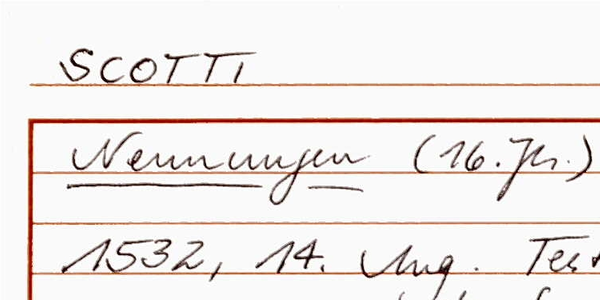 SCOTTI
Nennungen (16. Jh.)
1532, 14. Aug. Test